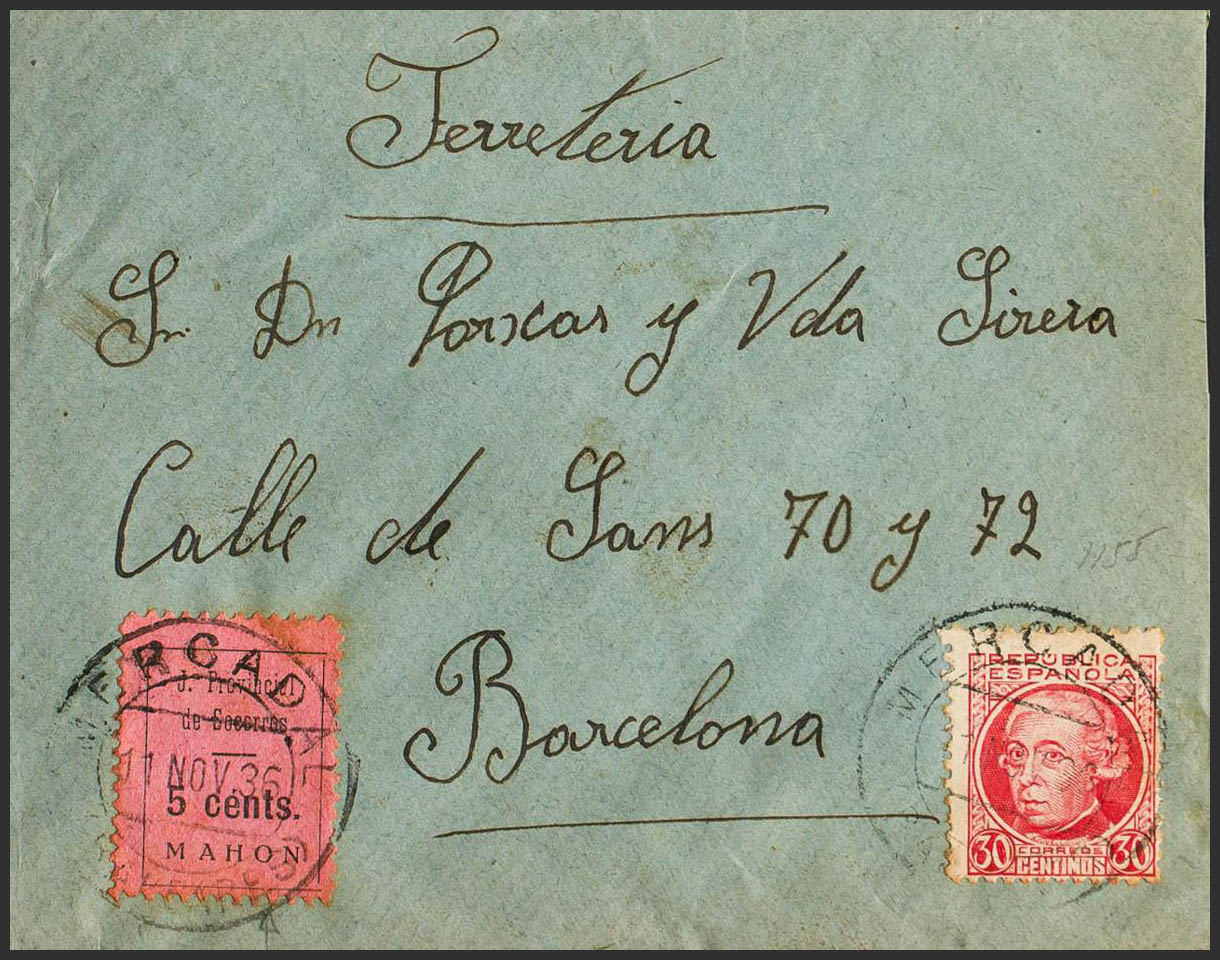 Ferreteria
Sr. Dn Porxas y Vda Sirera
Calle de Sans 70 y 72
1155
Barcelona
MERCADAL
J. Provincial
de Socorros
11 NOV.36
5 cents.
MAHON
MERCADAL
REPÚBLICA
ESPAÑOLA
30 CORREOS 30
CENTIMOS